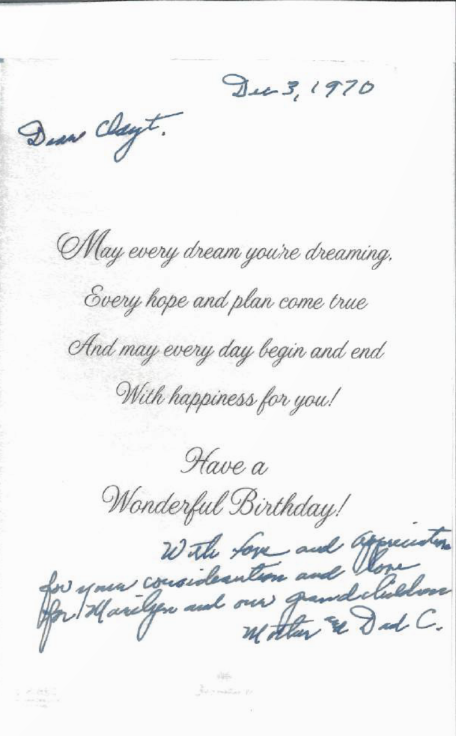 Dec 3, 1970
Dear Clayt.
May every dream you're dreaming,
Every hope and plan come true
And may every day begin and end
With happiness for you!
Have a
Wonderful Birthday!
With love and appreciation
for your consideration and love
for Marilyn and our grandchildren
Mother & Dad C.